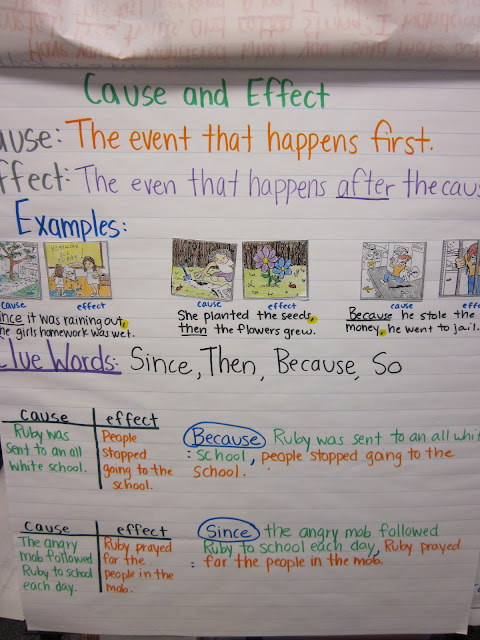 Cause and Effect
ause: The event that happens first.
ffect: The even that happens after the caus
Examples:
cause effect cause effect cause effe
ince it was raining out, She planted the seeds, Because he stole the
he girls homework was wet. then the flowers grew. money, he went to jail.
Clue Words: Since, Then, Because, So
cause effect
Ruby was sent to an all white school.
People stopped going to the school.
Because Ruby was sent to an all whi
: school, people stopped going to the
school.
cause effect
The angry mob followed Ruby to school each day.
Ruby prayed for the people in the mob.
Since the angry mob followed
Ruby to school each day, Ruby prayed
: for the people in the mob.